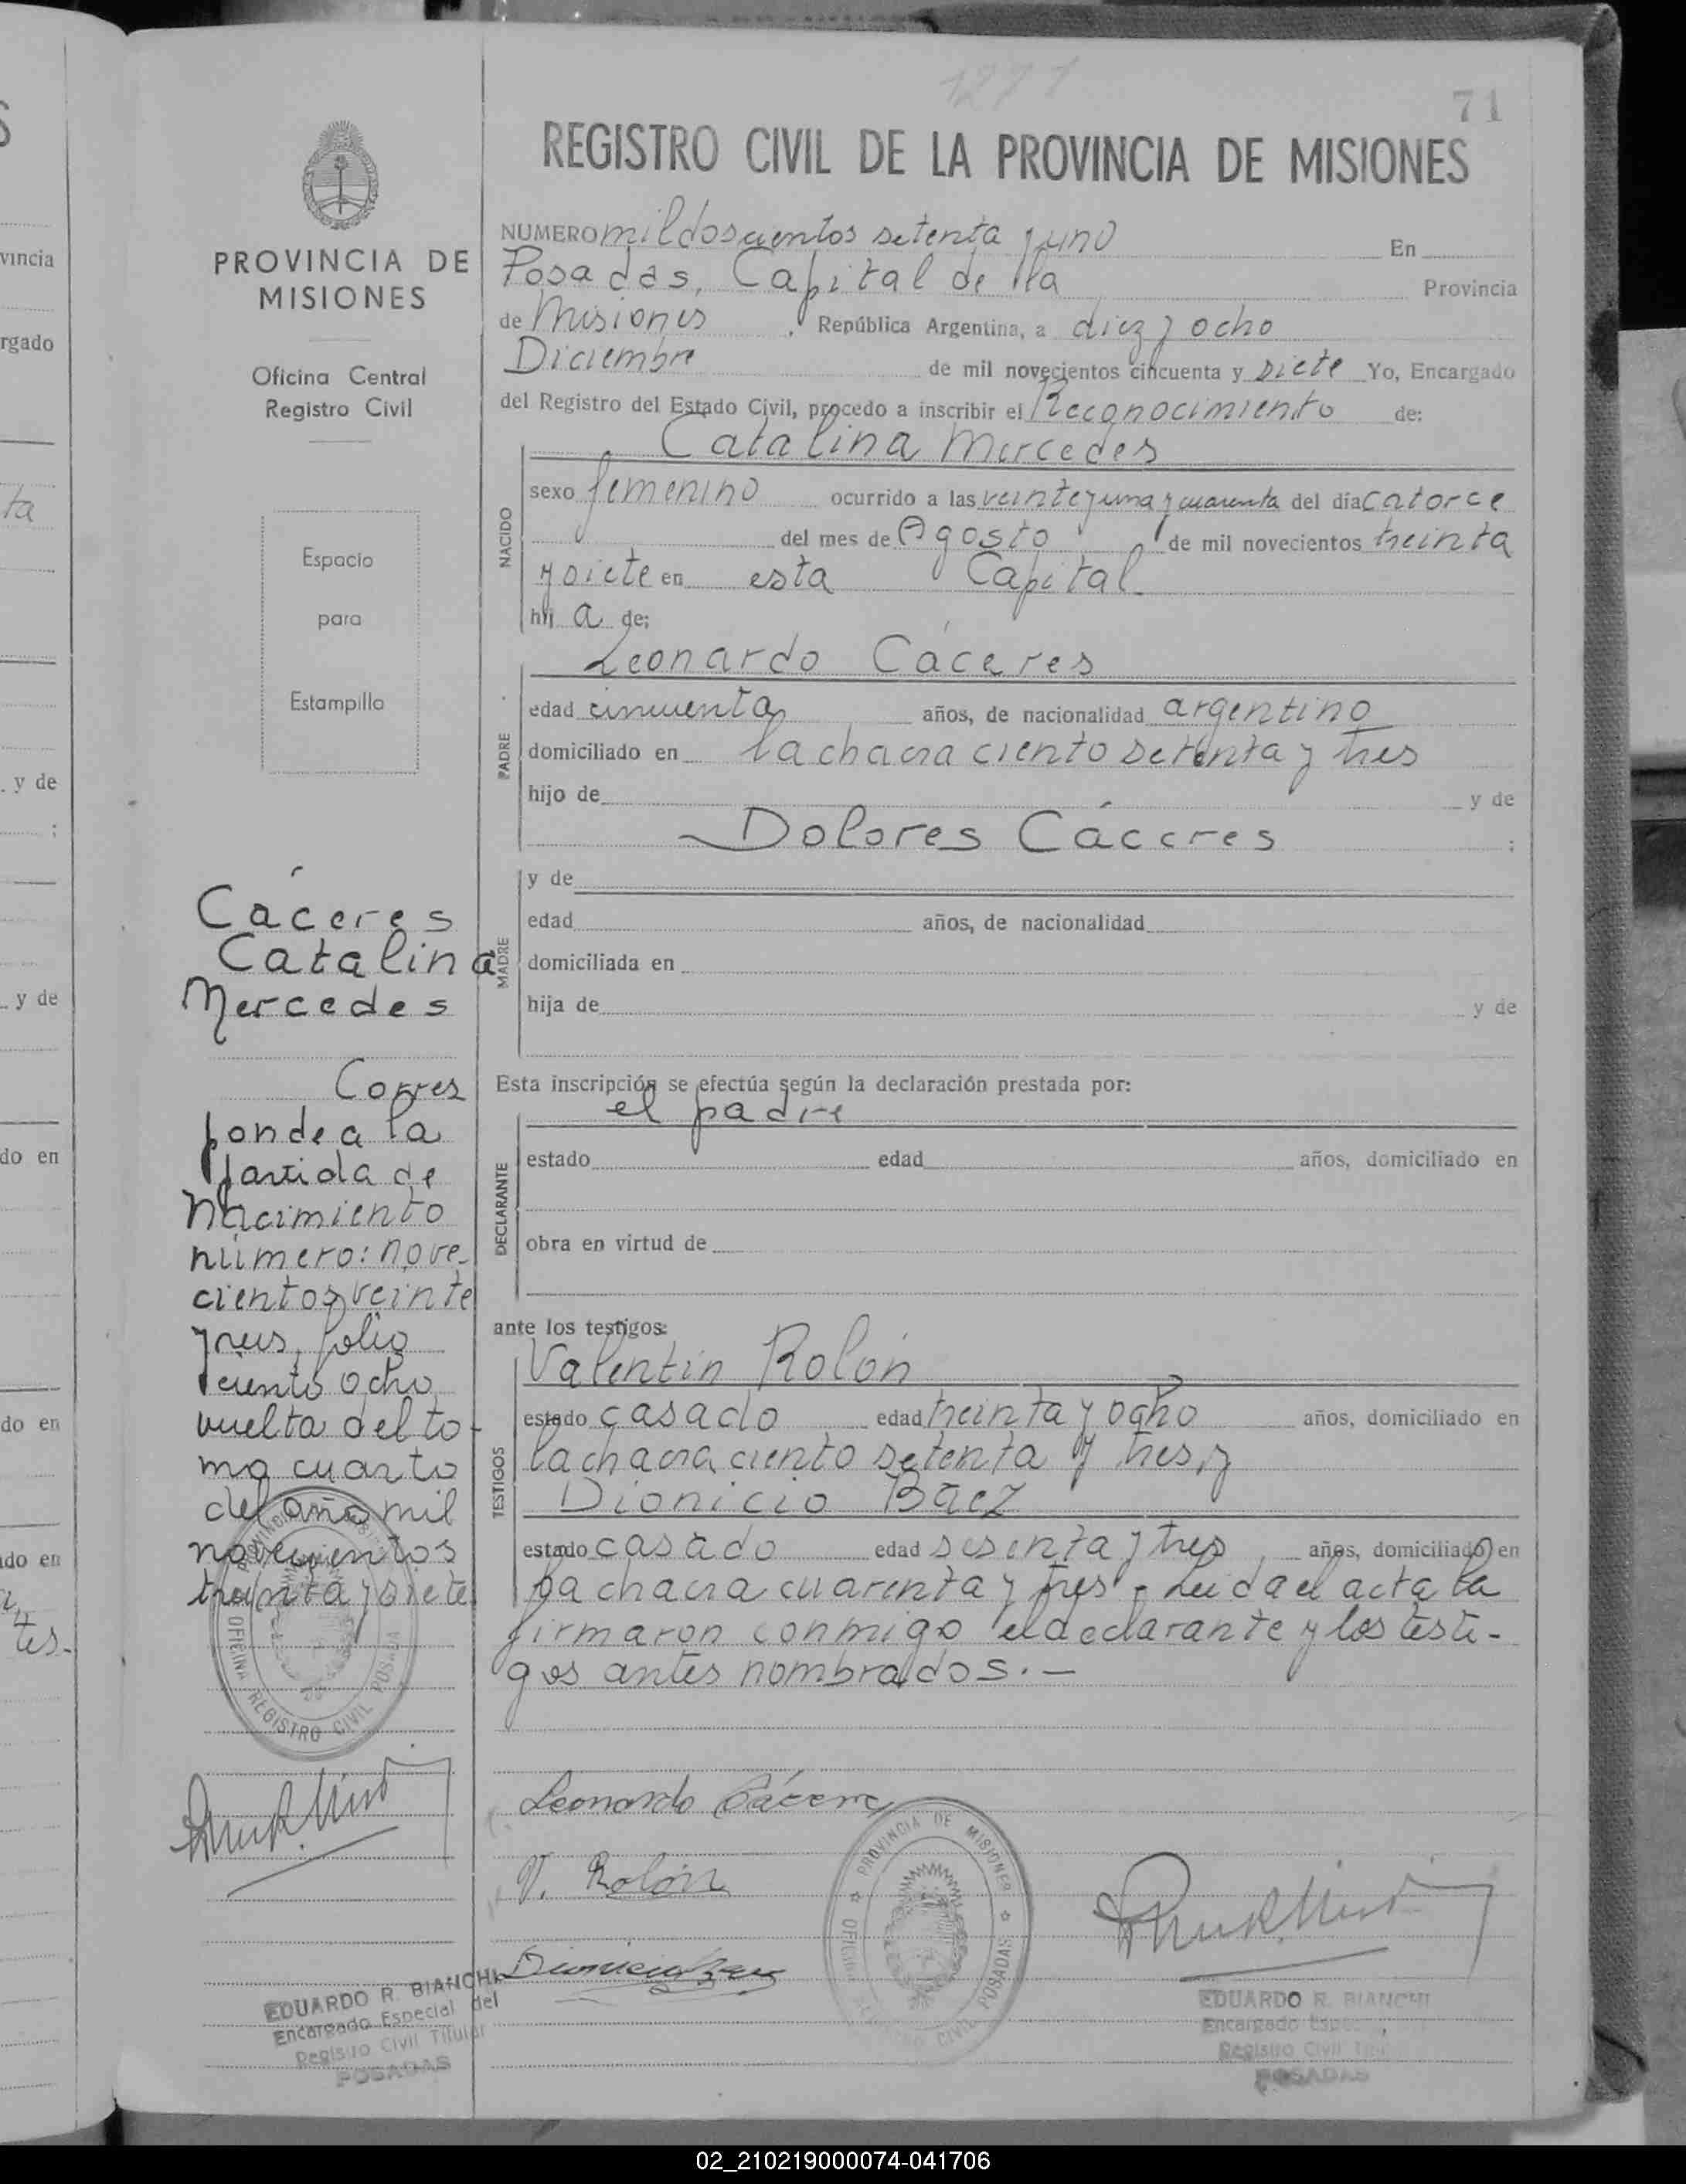 1271
71
REGISTRO CIVIL DE LA PROVINCIA DE MISIONES
PROVINCIA DE
MISIONES
Oficina Central
Registro Civil
Espacio
para
Estampilla
Cáceres
Catalina
Mercedes
Corres
ponde a la
partida de
nacimiento
número: nove-
cientos veinte
y tres, folio
ciento ocho
vuelta del to-
mo cuarto
del año mil
novecientos
treinta y siete
OFICINA REGISTRO CIVIL POSADAS
EDUARDO R. BIANCHI
Encargado Especial del
Registro Civil Titular
POSADAS
NUMERO mil doscientos setenta y uno En
Posadas, Capital de la Provincia
de Misiones, República Argentina, a diez y ocho
Diciembre de mil novecientos cincuenta y siete Yo, Encargado
del Registro del Estado Civil, procedo a inscribir el Reconocimiento de:
Catalina Mercedes
NACIDO
sexo femenino ocurrido a las veinte y una y cuarenta del día catorce
del mes de Agosto de mil novecientos treinta
y siete en esta Capital
hij a de:
Leonardo Cáceres
PADRE
edad cincuenta años, de nacionalidad argentino
domiciliado en la chacra ciento setenta y tres
hijo de y de
Dolores Cáceres ;
MADRE
y de
edad años, de nacionalidad
domiciliada en
hija de y de
Esta inscripción se efectúa según la declaración prestada por:
el padre
DECLARANTE
estado edad años, domiciliado en
obra en virtud de
ante los testigos:
Valentín Rolón
TESTIGOS
estado casado edad treinta y ocho años, domiciliado en
la chacra ciento setenta y tres, y
Dionicio Báez
estado casado edad sesenta y tres, años, domiciliado en
la chacra cuarenta y tres - Leida el acta la
firmaron conmigo el declarante y los testi-
gos antes nombrados. —
Leonardo Cáceres
V. Rolón
Dionicio Baez
PROVINCIA DE MISIONES
OFICINA REGISTRO CIVIL POSADAS
EDUARDO R. BIANCHI
Encargado
Registro Civil
POSADAS
vincia
rgado
ta
y de
y de
do en
do en
do en
tes.
02_210219000074-041706